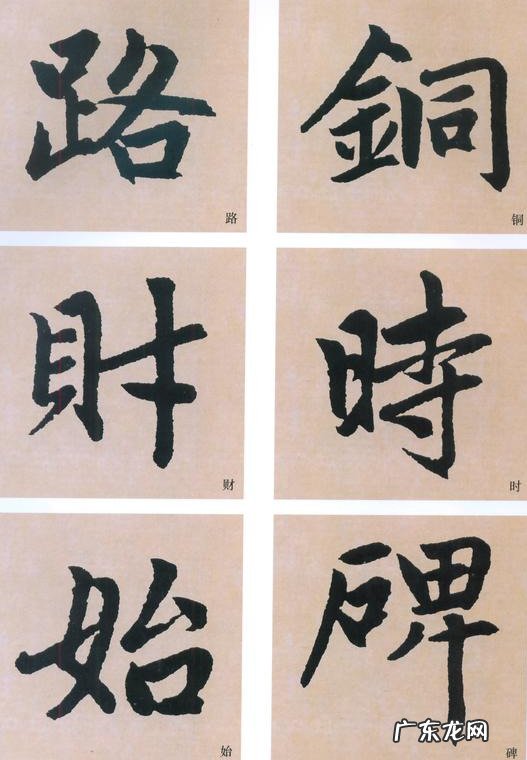 路 銅
路 铜
財 時
财 时
始 碑
始 碑
广东龙网